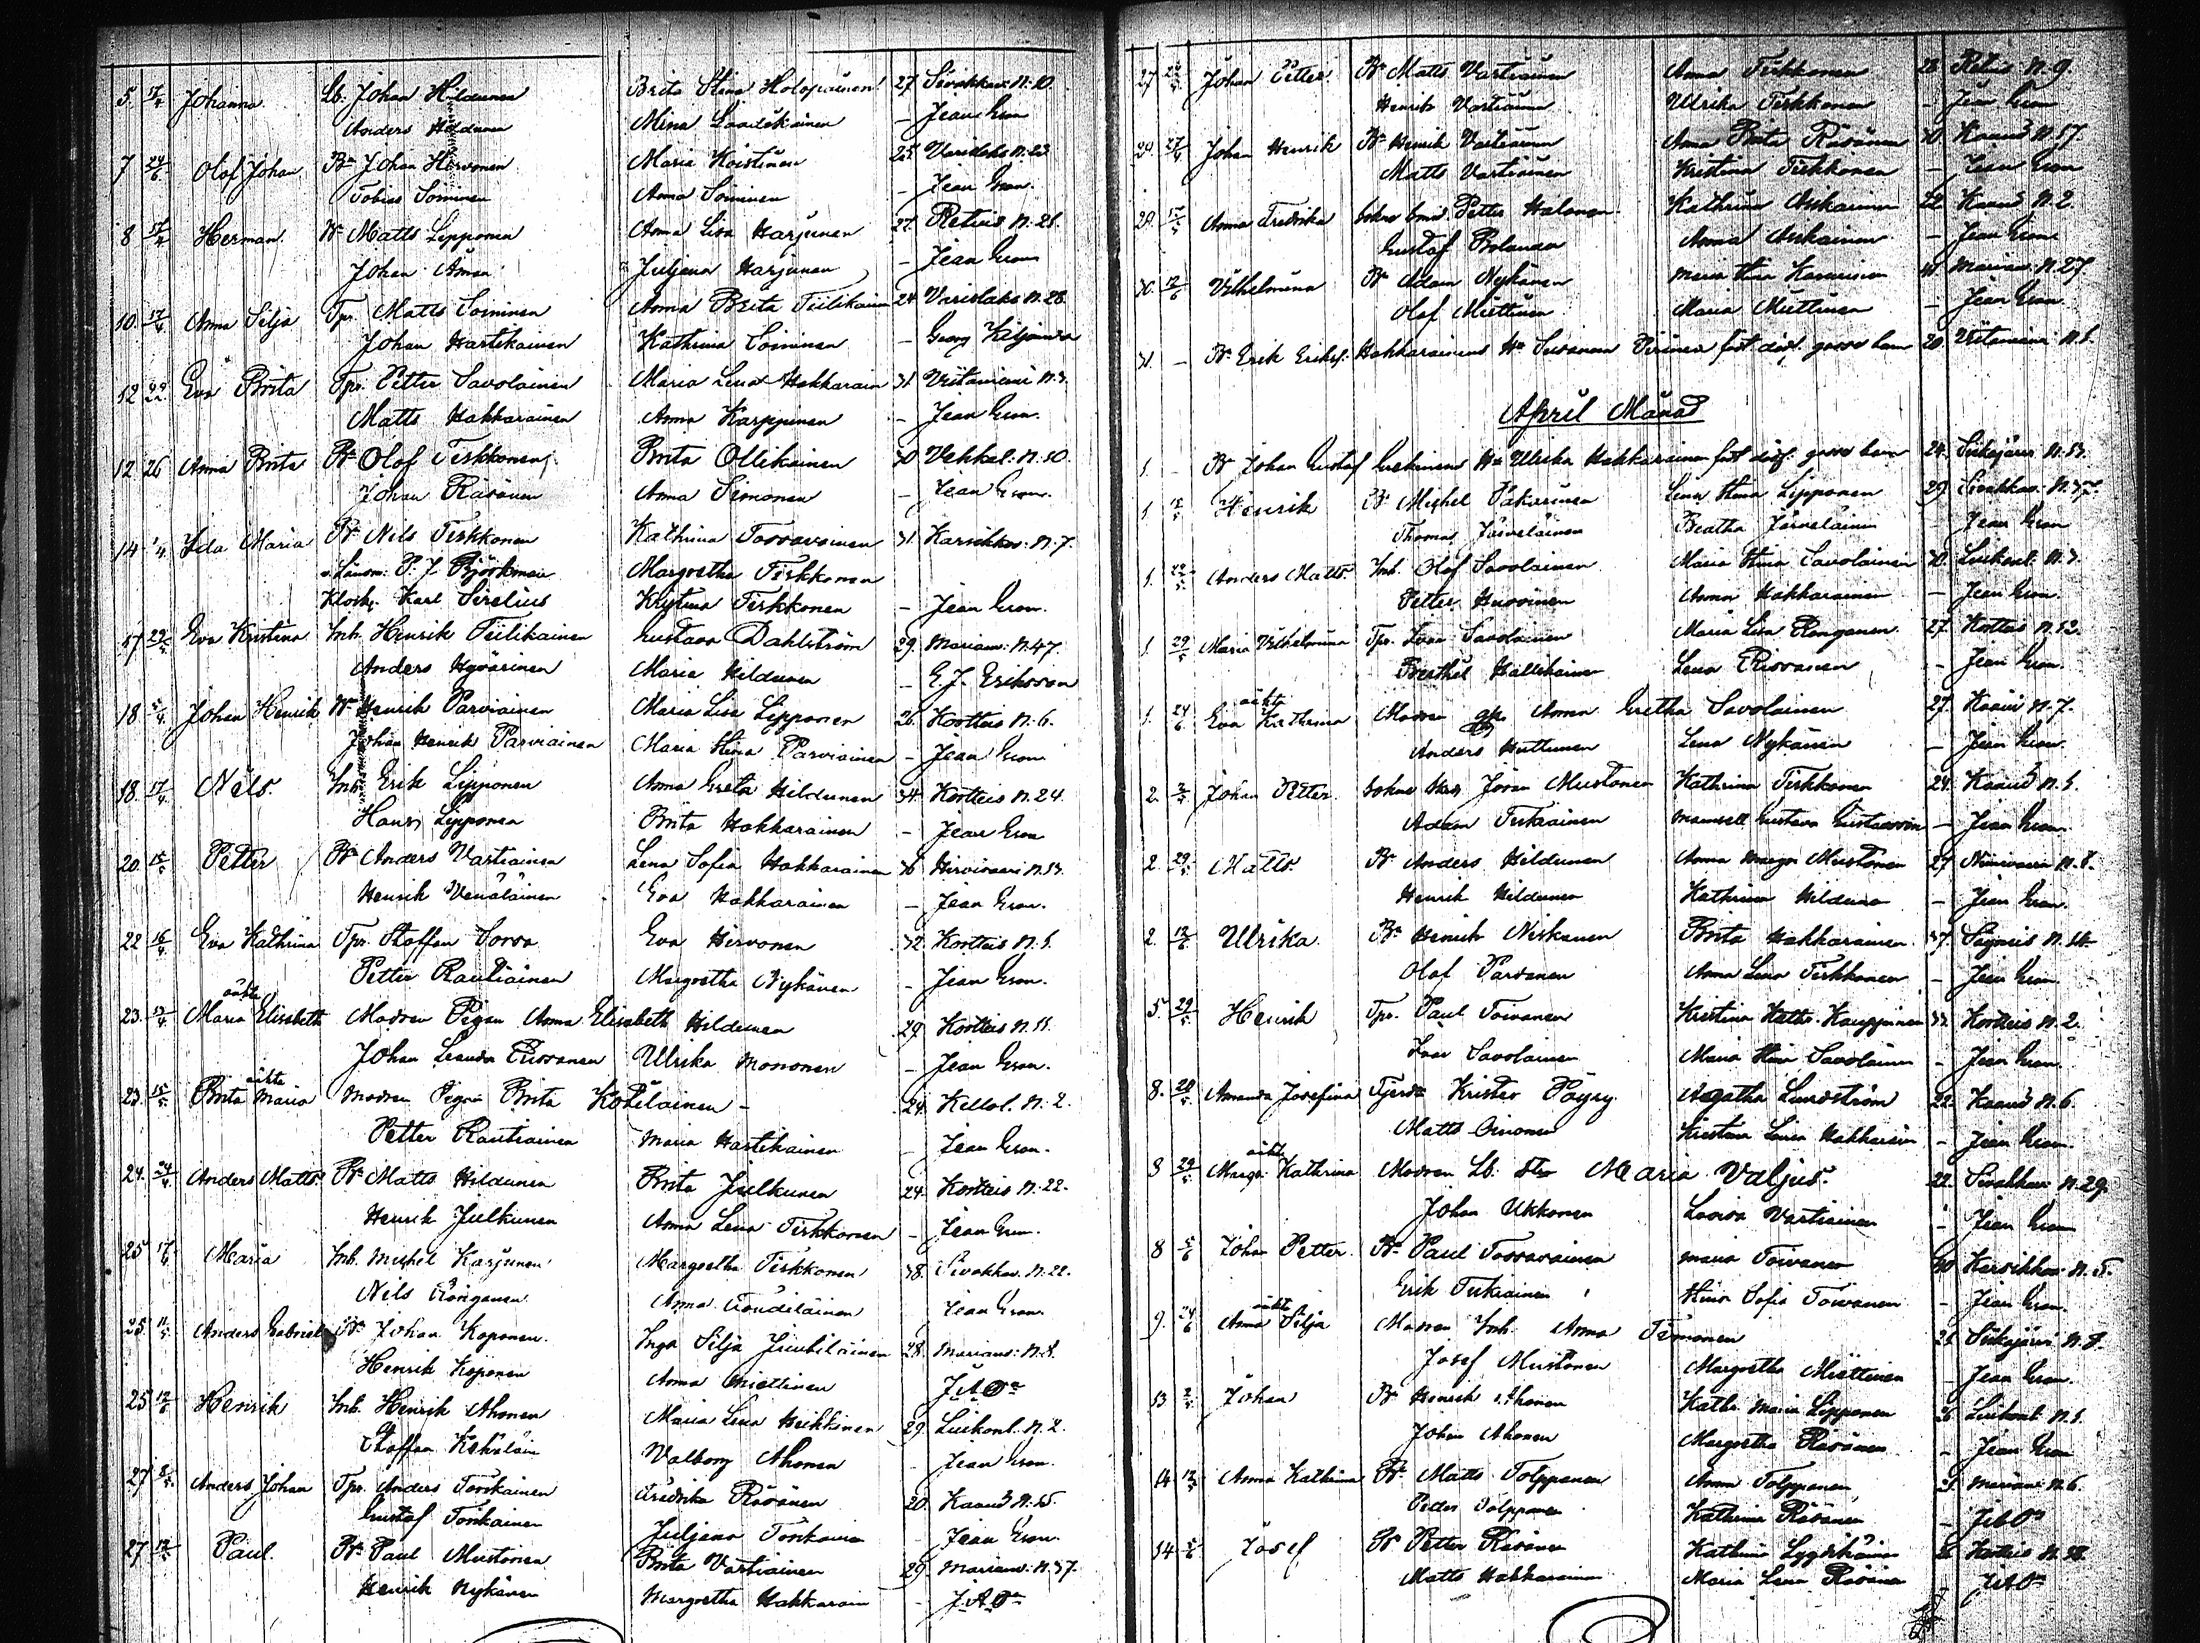 5. 17/4 Johanna Lb. Johan Hildunen Brita Stina Holopainen 27 Sivakkav. N. 10.
Anders Hildunen Mina Laatikainen – Jean Gron
7 24/6 Olof Johan Bd Johan Hirvonen Maria Koistinen 25 Varislaks N. 23
Tobias Soininen Anna Soininen – Jean Gron.
8 17/4 Herman Bd Matts Lipponen Anna Lisa Harjunen 27. Peltois N. 26.
Johan Åman Juljana Harjunen – Jean Gron
10. 17/4 Anna Silja Tpr. Matts Soininen Anna Brita Tiilikainen 24 Varislaks N. 28.
Johan Hartikainen Kathrina Soininen – Georg Kiljander
12 Eva Brita Tpr. Petter Savolainen Maria Lena Hakkarain 31. Viitaniemi N. 3.
Matts Hakkarainen Anna Karppinen – Jean Gron.
12 26 Anna Brita Bd Olof Tirkkonen Brita Ollikainen 30 Vehkal. N. 10.
Johan Räsänen Anna Simonen – Jean Gron.
14 1/4 Ida Maria Bd Nils Tirkkonen Kathrina Tossavainen 31. Karsikkov. N. 7.
v. Länsm. P. J. Björkman Margretha Tirkkonen
Klock. Karl Sirelius Kristina Tirkkonen – Jean Gron.
17 Eva Kristina Inh. Henrik Tiilikainen Gustava Dahlström 29. Marianv. N. 47.
Anders Hyvärinen Maria Hildunen – E. J. Eriksson
18. 5/4 Johan Henrik Bd Henrik Parviainen Maria Lisa Lipponen 26. Kortteis N. 6.
Johan Henrik Parviainen Maria Stina Parviainen – Jean Gron
18. 17/4 Nils. Inh. Erik Lipponen Anna Greta Hildunen 34. Kortteis N. 24.
Hans Lipponen Brita Hakkarainen – Jean Gron
20. 15/5 Petter Bd Anders Vartiainen Lena Sofia Hakkarainen 36 Hirvivaara N. 13.
Henrik Venäläinen Eva Hakkarainen – Jean Gron.
22 16/4 Eva Kathrina Tpr. Staffan Sorsa Eva Hirvonen 32 Kortteis N. 5.
Petter Rautiainen Margretha Nykänen – Jean Gron.
oäkta
23. 17/4 Maria Elisabeth Modren Pigan Anna Elisabeth Hildunen 29. Kortteis N. 11.
Johan Leander Rissanen Ulrika Mononen – Jean Gron.
oäkta
23. 15/5 Brita Maria Modren Pigan Brita Kotilainen – 24. Kellol. N. 2.
Petter Rautiainen Maria Hartikainen – Jean Gron.
24. 24/4 Anders Matts Bd Matts Hildunen Brita Julkunen 24. Kortteis N. 22.
Henrik Julkunen Anna Lena Tirkkonen – Jean Gron.
25 17/6 Maria Inh. Michel Karjunen Margretha Tirkkonen 38. Sivakkav. N. 22.
Nils Ronganen Anna Jean Gron.
25. 11/5 Anders Gabriel Bd Johan Koponen. Inga Silja Juutilainen 28. Marianv. N. 8.
Henrik Koponen Anna Miettinen
25 12/6 Henrik Inh. Henrik Ahonen Maria Lena Heikkinen 29. Luikonl. N. 2.
Staffan Valborg Ahonen Jean Gron.
27 Anders Johan Tpr. Anders Tonkainen Fredrika Räsänen 20. Kaavi N. 15.
Gustaf Tonkainen Juljana Tonkainen – Jean Gron.
27 12/5 Paul. Bd Paul Mustonen Brita Vartiainen 29. Marianv. N. 37.
Henrik Nykänen Margretha Hakkarain –
27 Johan Petter Bd Matts Vartiainen Anna Tirkkonen 28 Peltois N. 9.
Henrik Vartiainen Ulrika Tirkkonen – Jean Gron
29. 27/4 Johan Henrik Bd Henrik Vartiainen Anna Brita Räsänen 30 Kaavi N. 17.
Matts Vartiainen Kristina Tirkkonen – Jean Gron
29. 15/5 Anna Fredrika Sokne Smid Petter Halonen Kathrina Asikainen 22 Kaavi N. 2.
Gustaf Bolander Anna Asikainen – Jean Gron
30. 12/6 Vilhelmina Bd Adam Nykänen Maria Stina 40 Marianv. N. 27.
Olof Miettinen Maria Miettinen – Jean Gron.
31. – Bd Erik Eriks. Hakkarainens Hu Susanna Piirinen född död. gosse barn 20 Viitaniemi N. 6.
April Månad
1. – Bd Johan Gustaf Hu Ulrika Hakkarainen född död. gosse barn 24. Siikajärvi N. 13.
1 12/5 Henrik Bd Michel Pakarinen Lena Stina Lipponen 29. Sivakkav. N. 37.
Thomas Järveläinen Beatha Järveläinen – Jean Gron
1. 22/5 Anders Matts. Inh. Olof Savolainen Maria Stina Savolainen 30. Luikonl. N. 3.
Petter Huovinen Anna Hakkarainen – Jean Gron.
1 29/5 Maria Vilhelmina Tpr. Ivar Savolainen Maria Lisa Ronganen. 27. Kortteis N. 12.
Berthil Hallikainen Lena Rissanen – Jean Gron.
oäkta
1. 24/6 Eva Kathrina Modren Anna Gretha Savolainen 27. Kaavi N. 7.
Anders Huttunen Lena Nykänen – Jean Gron.
2. 2/5 Johan Petter. Sokne Skr. Jöran Mustonen Kathrina Tirkkonen 24. Kaavi N. 5.
Adam Tiikkainen Mamsell Gustava Gustavson – Jean Gron.
2. 29/5 Matts. Bd Anders Hildunen Anna Margr. Mustonen 27 Niinivaara N. 8.
Henrik Hildunen Kathrina Hildunen – Jean Gron.
2. 12/6 Ulrika. Bd Henrik Niskanen Brita Hakkarainen 37. N. 14.
Olof Parsanen Anna Lena Tirkkonen – Jean Gron.
5. 29/5 Henrik Tpr. Paul Toivanen Kristina Kathr. Kauppinen 32. Kortteis N. 2.
Ivar Savolainen Maria Stina Savolainen – Jean Gron.
8. 28/5 Amanda Josefina Fjerds. Krister Pöyry. Agatha Lundström 22. Kaavi N. 6.
Matts Oinonen Kristina Lovisa Hakkarain – Jean Gron.
oäkta
8 29/5 Margr. Kathrina Modren Lb. Maria Valjus. 22. Sivakkav. N. 29.
Johan Ukkonen Lovisa Vartiainen – Jean Gron
8 5/6 Johan Petter. Bd Paul Tossavainen Maria Toivanen 40 Karsikkov. N. 5.
Erik Tiikkainen Stina Sofia Toivanen – Jean Gron.
oäkta
9. 24/6 Anna Silja Modren Inh. Anna Timonen 21. Siikajärvi N. 8.
Josef Mustonen Margretha Miettinen – Jean Gron.
13 2/5 Johan Bd Henrik Ahonen Kathr. Maria Lipponen 26 Luikonl. N. 5.
Johan Ahonen Margretha Räsänen – Jean Gron
14 12/5 Anna Kathrina Bd Matts Tolppanen Anna Tolppanen 25. Marianv. N. 6.
Petter Tolppanen Kathrina Räsänen –
14 5/6 Josef Bd Petter Räsänen Kathrina Lyytikäinen 26 Kortteis N. 38.
Matts Hakkarainen Maria Lena Räsänen